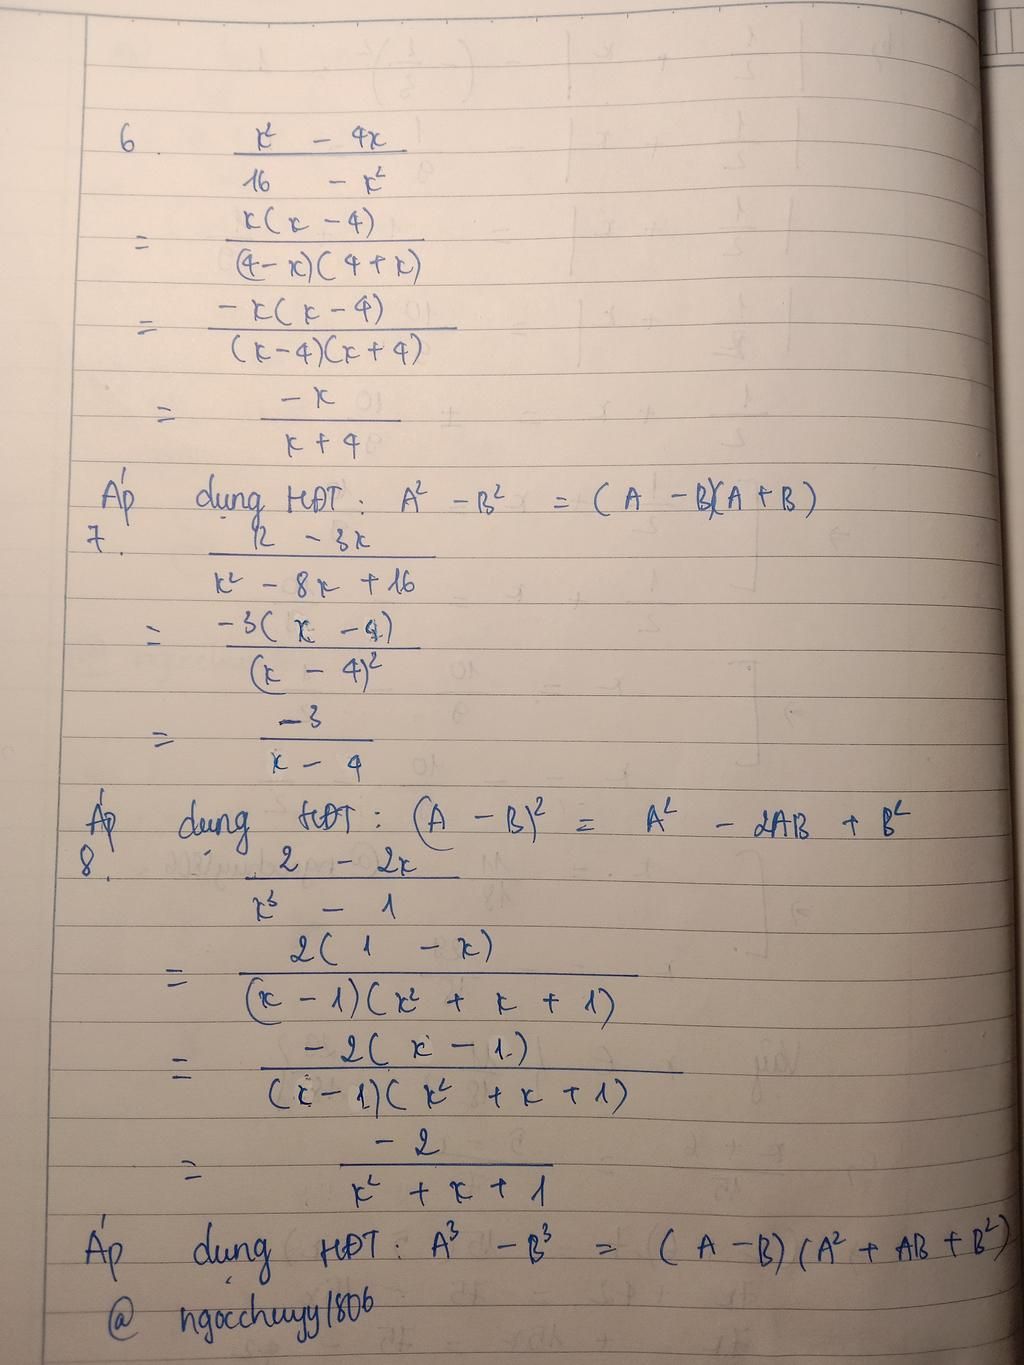 6. x² - 4x
16 - x²
= x(x - 4)
(4 - x)(4 + x)
= -x(x - 4)
(x - 4)(x + 4)
= -x
x + 4
Áp dụng HĐT: A² - B² = (A - B)(A + B)
7. 12 - 3x
x² - 8x + 16
= -3(x - 4)
(x - 4)²
= -3
x - 4
Áp dụng HĐT: (A - B)² = A² - 2AB + B²
8. 2 - 2x
x³ - 1
= 2(1 - x)
(x - 1)(x² + x + 1)
= -2(x - 1)
(x - 1)(x² + x + 1)
= -2
x² + x + 1
Áp dụng HĐT: A³ - B³ = (A - B)(A² + AB + B²)
@ ngocchuyy1806